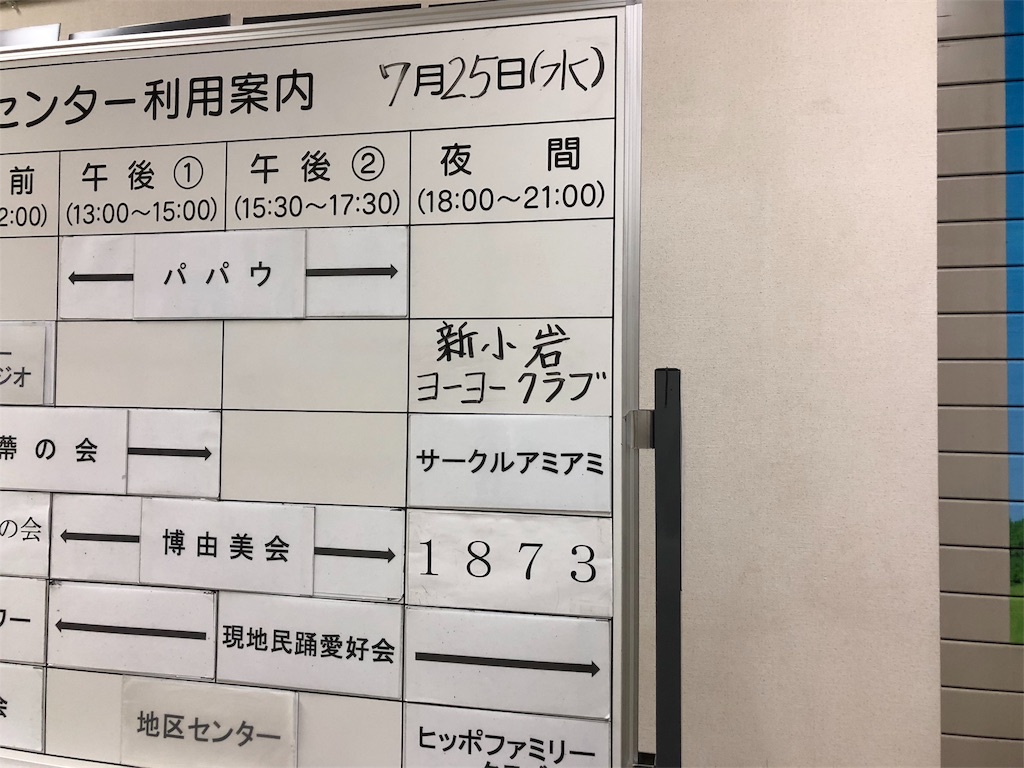 センター利用案内 7月25日(水)
前 午後① 午後② 夜間
2:00) (13:00～15:00) (15:30～17:30) (18:00～21:00)
← パパウ →
新小岩
ヨーヨークラブ
ジオ
の会 →
サークルアミアミ
の会
← 博由美会 →
1873
ワー
← 現地民踊愛好会 →
会
地区センター
ヒッポファミリー
クラブ